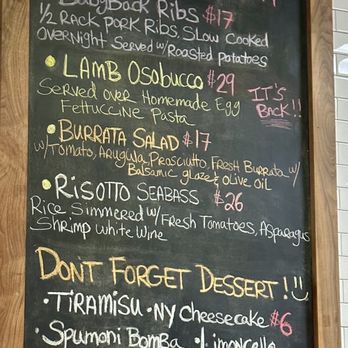 BabyBack Ribs $17
1/2 RACK PORK RIBS, SLOW COOKED
OVERNIGHT SERVED w/ROASTED POTATOES
• LAMB OSOBUCCO $29
SERVED OVER HOMEMADE EGG
FETTUCCINE PASTA
IT'S
BACK!!
• BURRATA SALAD $17
w/TOMATO, ARUGULA, PROSCIUTTO, FRESH BURRATA w/
BALSAMIC GLAZE & OLIVE OIL
• RISOTTO SEABASS $26
RICE SIMMERED w/FRESH TOMATOES, ASPARAGUS
SHRIMP WHITE WINE
DON'T FORGET DESSERT!
• TIRAMISU • NY CHEESECAKE $6
• SPUMONI BOMBA • Limoncello